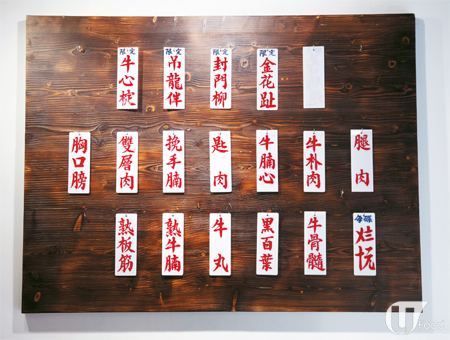 限定 牛心椗
限定 吊龍伴
限定 封門柳
限定 金花趾
胸口膀
雙層肉
挽手腩
匙肉
牛腩心
牛朴肉
腿肉
熟板筋
熟牛腩
牛丸
黑百葉
牛骨髓
U Food